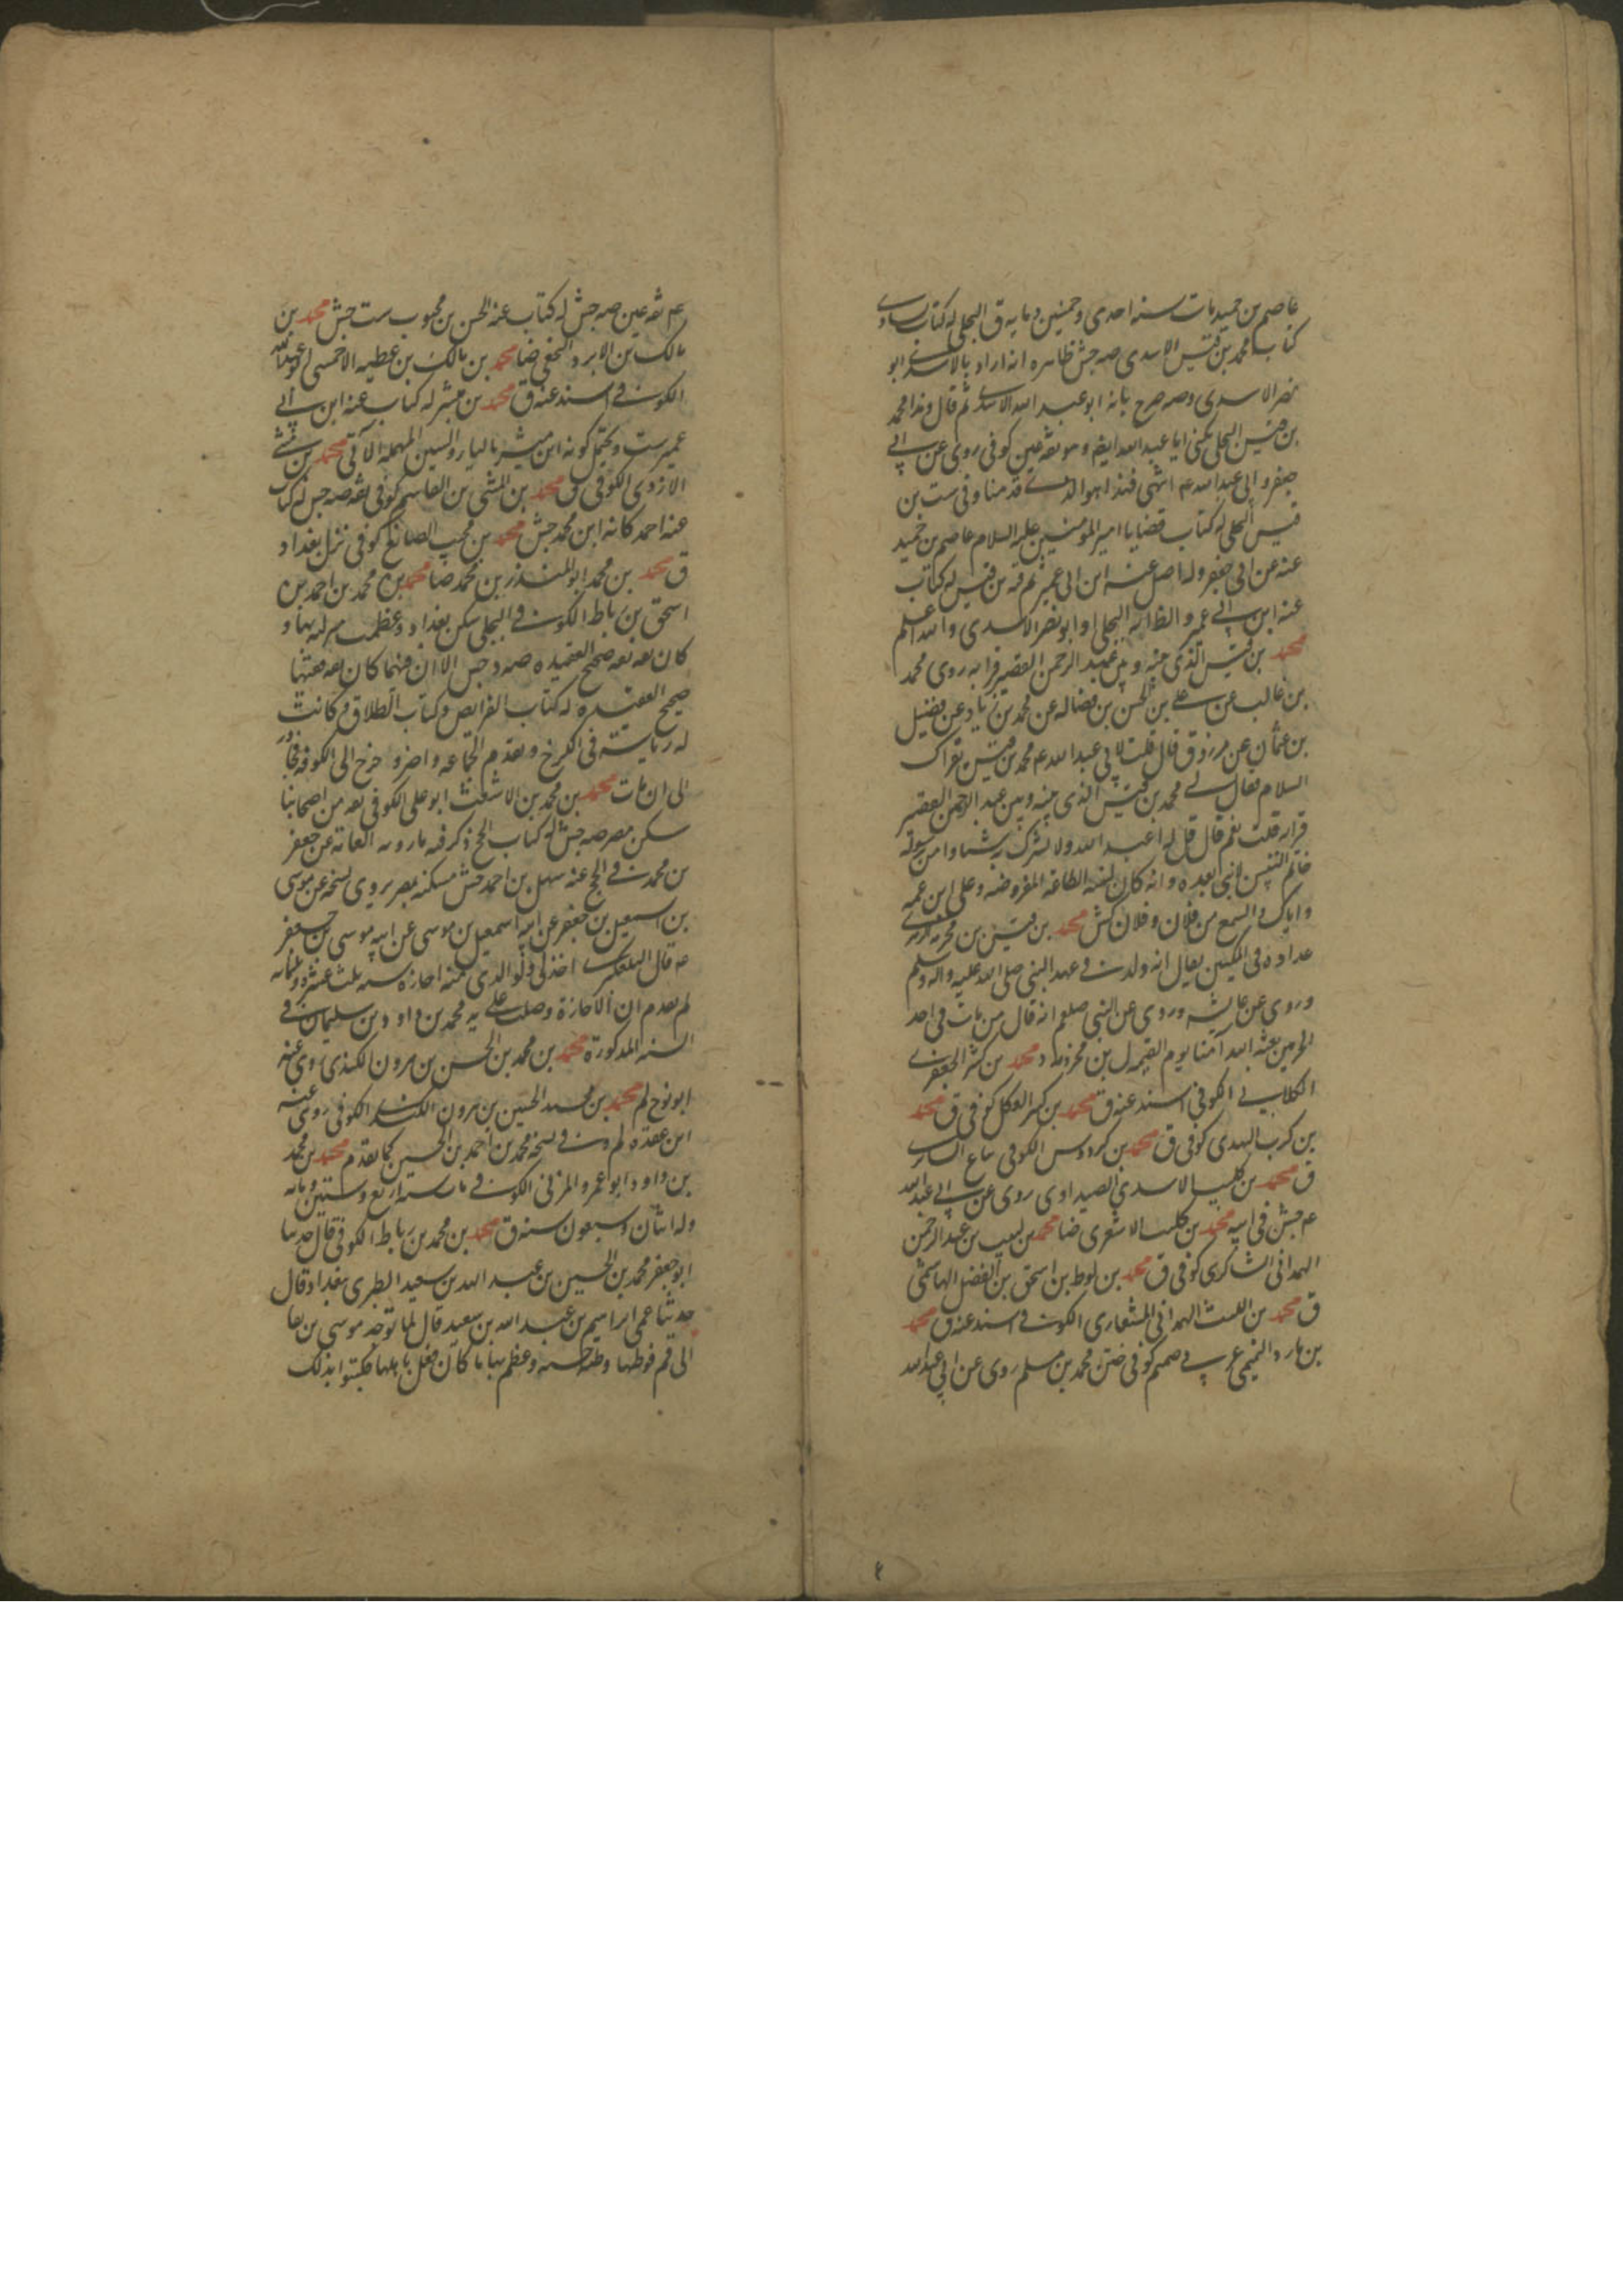 عاصم بن حميد مات سنه احدى وخمسين ومايه ق البجلى له كتاب يساوى
كتاب محمد بن قيس الاسدى صه جش ظاهره انه اراد بالاسدى ابو
نصر الاسدى وصه صرح بانه ابو عبد الله الاسدى ثم قال ولنا محمد
بن قيس البجلى يكنى ابا عبد الله ايضا وهو ثقه عين كوفى روى عن ابى
جعفر وابى عبد الله عم انتهى فهذا هو الذى قدمنا وفى ست بن
قيس البجلى له كتاب قضايا امير المومنين عليه السلام عاصم بن حميد
عنه عن ابى جعفر وله اصل عنه ابن ابى عمير ثم فيه بن قيس له كتاب
عنه ابن ابى عمير والظ انه البجلى او ابو نصر الاسدى والله اعلم
محمد بن قيس الذى بينه وبين عبد الرحمن القصير قرابه روى محمد
بن غالب عن على بن الحسن بن فضاله عن محمد بن زياد عن فضيل
بن عثمان عن مرزوق قال قلت لابى عبد الله عم محمد بن قيس يقراك
السلام فقال لى محمد بن قيس الذى بينه وبين عبد الرحمن القصير
قرابه قلت نعم قال قل له اعبد الله ولا تشرك به شيئا وامن برسوله
خاتم النبيين لا نبى بعده وانه كان له الطاعه المفروضه وعلى ابن عمه
واياك والسمع من فلان وفلان كش محمد بن قيس بن مخرمه
عداده فى المكيين يقال انه ولد فى عهد النبى صلى الله عليه واله وسلم
وروى عن عايشه وروى عن النبى صلعم انه قال من مات فى احد
الحرمين بعثه الله آمنا يوم القيمه ل بن مخرمه د محمد بن كثير الجعفرى
الكلابى الكوفى اسند عنه ق محمد بن كثير العكلى كوفى ق محمد
بن كرب الهدى كوفى ق محمد بن كردوس الكوفى بياع السابرى
ق محمد بن كليب الاسدى الصيداوى روى عن ابى عبد الله
عم جش فى ابيه محمد بن كليب الاشعرى ضا محمد بن لبيب بن عبد الرحمن
الهمدانى الشاكرى كوفى ق محمد بن لوط بن اسحق بن الفضل الهاشمى
ق محمد بن الليث الهمدانى المشعارى الكوفى اسند عنه ق محمد
بن مارد التميمى عربى صميم كوفى ختن محمد بن مسلم روى عن ابى عبد الله
عم ثقه عين صه جش له كتاب عنه الحسن بن محبوب ست جش محمد بن
مالك بن الابرد النخعى ضا محمد بن مالك بن عطيه الاحمسى ابو عبد الله
الكوفى اسند عنه ق محمد بن مبشر له كتاب عنه ابن ابى
عمير ست ويحتمل كونه ابن ميسر بالياء والسين المهمله الآتى محمد بن مثنى
الازدى الكوفى ق محمد بن المثنى بن القاسم كوفى ثقه صه جش له كتاب
عنه احمد كانه ابن محمد جش محمد بن محبب الصايغ كوفى نزل بغداد
ق محمد بن محمد ابو المنذر بن محمد ضا محمد بن محمد بن احمد بن
اسحق بن رباط الكوفى البجلى سكن بغداد وعظمت منزلته بها و
كان ثقه ثقه صحيح العقيده صه د جش الا ان فيهما كان ثقه فقيها
صحيح العقيده له كتاب الفرايض وكتاب الطلاق م كانت
له رياسته فى الكرخ وتقدم الجماعه واخر وخرج الى الكوفه فجاور
الى ان مات محمد بن محمد بن الاشعث ابو على الكوفى ثقه من اصحابنا
سكن مصر صه جش له كتاب الحج ذكر فيه ما روته العامه عن جعفر
بن محمد فى الحج عنه سهل بن احمد جش مسكنه بمصر يروى نسخه عن موسى
بن اسمعيل بن جعفر عن ابيه اسمعيل بن موسى عن ابيه موسى بن جعفر
عه قال التلعكبرى اخذ لى ولوالدى منه اجازه سنه ثلث عشر وثلثمايه
لم يعدم ان الاجازة وصلت على يد محمد بن داود بن سليمان فى
السنه المذكورة محمد بن محمد بن الحسن بن هرون الكندى روى عنه
ابو نوح لم محمد بن محمد الحسين بن هرون الكندى الكوفى روى عنه
ابن عقده لم وفى نسخه محمد بن احمد بن الحسين كما تقدم محمد بن محمد
بن داود ابو عمرو المزنى الكوفى مات سنه اربع وستين ومايه
وله اثنان وسبعون سنه ق محمد بن محمد بن رباط الكوفى قال حدثنا
ابو جعفر محمد بن الحسين بن عبد الله بن سعيد الطبرى ببغداد قال
حدثنا عمى ابراهيم بن عبد الله بن سعيد قال لما توجه موسى بن بغا
الى قم فوطئها وطئه خشنه وعظم بها ما كان فعل باهلها فكتبوا بذلك